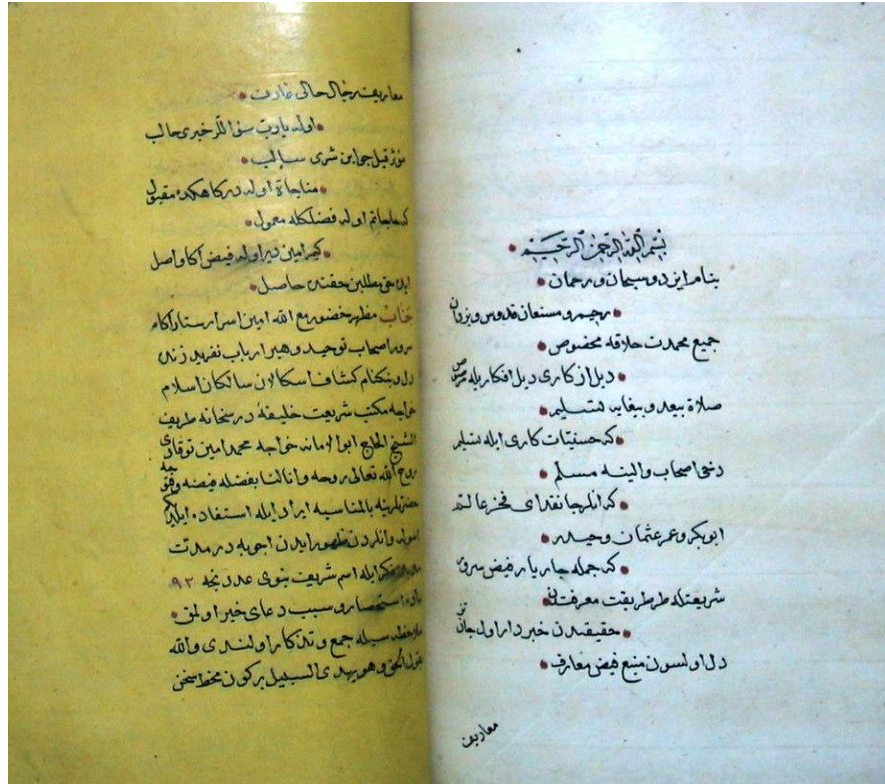 بسم الله الرحمن الرحيم
بنام ایزد و سبحان و رحمان
رحیم و مستعان قدوس و یزدان
جمیع محمدت خلاقه مخصوص
دیل از کاری دیل افکار یله
صلاة بیعد و بیغایه تسلیم
که حسنیتات کاری ایله تتیلم
دخی اصحاب و الینه مسلم
که انلر جانفدای فخر عالم
ابوبکر و عمر عثمان و حیدر
که جمله جاریار فیض سرور
شریعتله طرطریقت معرفتن
حقیقتدن خبردار اول جان
دل اولسون منبع فیض معارف
معاریف
معاریف رجال حالی عارف
اوله یاوب خبری جالب
مؤثر قیل جوابن شری سالب
مناجاة اوله درکاهکده مقبول
که حاجاتم اوله فضلکله معمول
کیم امین دیر اوله فیض اکا واصل
ایده حق مطلبن حقندن حاصل
جناب مظهر حضور مع الله امین اسرار ستار آکاه
سرور اصحاب توحید و هیر ارباب تفرید زنده
دل و نیکنام کشاف اسکالان سالکان اسلام
خواجه مکتب شریعت خلیفهٔ درسخانه طریقت
الشیخ الحاج ابو الامانه خواجه محمد امین توقادی
روح الله تعالی روحه و انالنا بفضله فیضه و فتوحه
حضرتلرینه بالمناسبه ایراد ایله استفاده ایلدیکم
اسوله و انلردن ظهور ایدن اجوبه در مدت
فکر ایله اسم شریف نبوی عددنجه ٩٢
استحصار و سبب دعای خیر اولمق
ملاحظه سیله جمع و تذکار اولندی والله
یقول الحق و هو یهدی السبیل برکون محط سخن